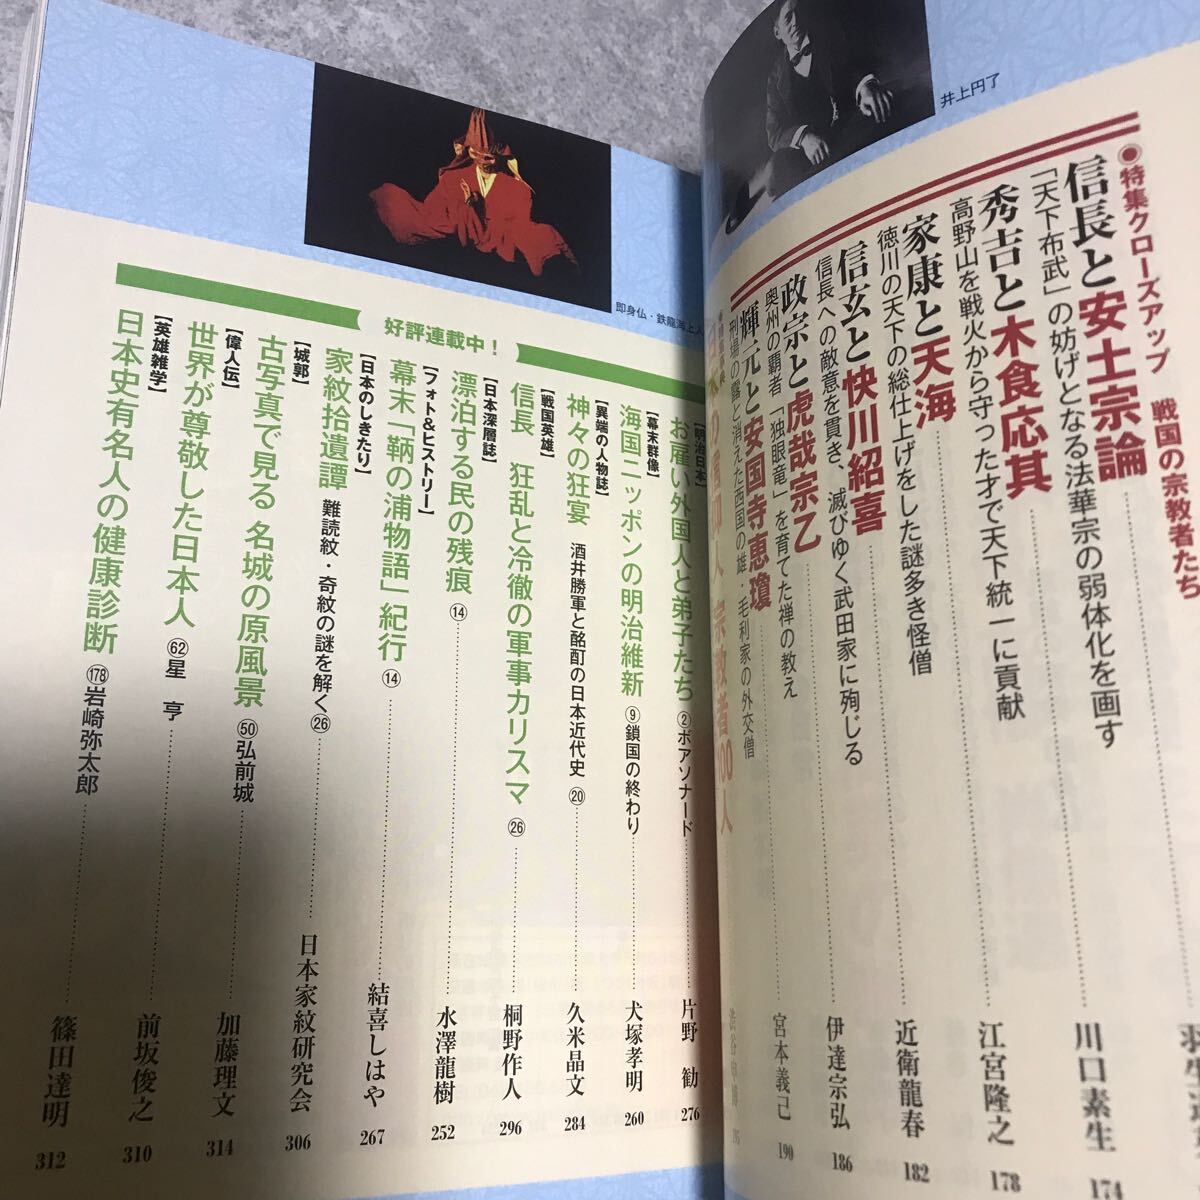 井上円了
●特集クローズアップ 戦国の宗教者たち
信長と安土宗論
「天下布武」の妨げとなる法華宗の弱体化を画す
川口素生
174
秀吉と木食応其
高野山を戦火から守った才で天下統一に貢献
江宮隆之
178
家康と天海
徳川の天下の総仕上げをした謎多き怪僧
近衛龍春
182
信玄と快川紹喜
信長への敵意を貫き、滅びゆく武田家に殉じる
伊達宗弘
186
政宗と虎哉宗乙
奥州の覇者「独眼竜」を育てた禅の教え
宮本義己
190
輝元と安国寺恵瓊
刑場の露と消えた西国の雄・毛利家の外交僧
人 宗教者100人
即身仏・鉄龍海上人
好評連載中！
【明治日本】
お雇い外国人と弟子たち ②ボアソナード
片野 勧
276
【幕末群像】
海国ニッポンの明治維新 ⑨鎖国の終わり
犬塚孝明
260
【異端の人物誌】
神々の狂宴 酒井勝軍と酩酊の日本近代史 ⑳
久米晶文
284
【戦国英雄】
信長 狂乱と冷徹の軍事カリスマ ㉖
桐野作人
296
【日本深層誌】
漂泊する民の残痕 ⑭
水澤龍樹
252
【フォト&ヒストリー】
幕末「鞆の浦物語」紀行 ⑭
結喜しはや
267
【日本のしきたり】
家紋拾遺譚 難読紋・奇紋の謎を解く㉖
日本家紋研究会
306
【城郭】
古写真で見る 名城の原風景 ㊿弘前城
加藤理文
314
【偉人伝】
世界が尊敬した日本人 62星 亨
前坂俊之
310
【英雄雑学】
日本史有名人の健康診断 178岩崎弥太郎
篠田達明
312